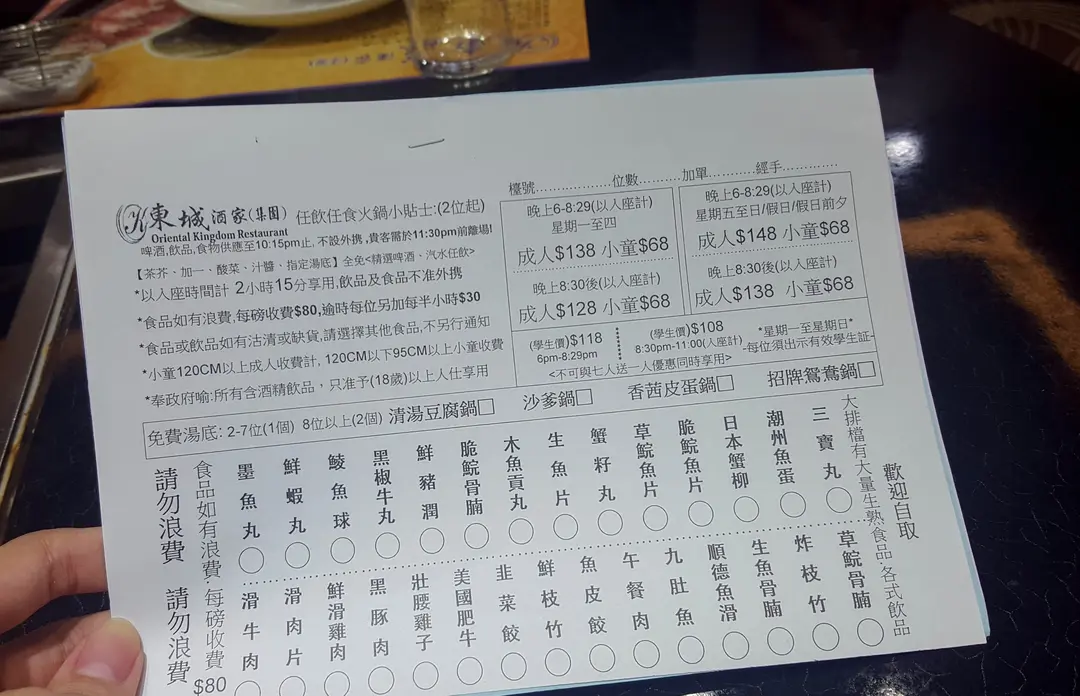 東城酒家(集團)
Oriental Kingdom Restaurant
任飲任食火鍋小貼士:(2位起)
啤酒,飲品,食物供應至10:15pm止, 不設外携,貴客需於11:30pm前離場!
【茶芥、加一、酸菜、汁醬、指定湯底】全免<精選啤酒、汽水任飲>
*以入座時間計 2小時15分享用,飲品及食品不准外携
*食品如有浪費,每磅收費$80,逾時每位另加每半小時$30
*食品或飲品如有沽清或缺貨,請選擇其他食品,不另行通知
*小童120CM以上成人收費計, 120CM以下95CM以上小童收費
*奉政府喻:所有含酒精飲品，只准予(18歲)以上人仕享用
檯號...................位數..........加單............經手..............
晚上6-8:29(以入座計)
星期一至四
成人$138 小童$68
晚上8:30後(以入座計)
成人$128 小童$68
晚上6-8:29(以入座計)
星期五至日/假日/假日前夕
成人$148 小童$68
晚上8:30後(以入座計)
成人$138 小童$68
(學生價)$118
6pm-8:29pm
(學生價)$108
8:30pm-11:00(入座計)
*星期一至星期日*
-每位須出示有效學生証-
<不可與七人送一人優惠同時享用>
免費湯底: 2-7位(1個) 8位以上(2個) 清湯豆腐鍋□ 沙爹鍋□ 香茜皮蛋鍋□ 招牌鴛鴦鍋□
請勿浪費 請勿浪費
食品如有浪費,每磅收費$80
墨魚丸
鮮蝦丸
鯪魚球
黑椒牛丸
鮮豬潤
脆鯇骨腩
木魚貢丸
生魚片
蟹籽丸
草鯇魚片
脆鯇魚片
日本蟹柳
潮州魚蛋
三寶丸
滑牛肉
滑肉片
鮮滑雞肉
黑豚肉
壯腰雞子
美國肥牛
韭菜餃
鮮枝竹
魚皮餃
午餐肉
九肚魚
順德魚滑
生魚骨腩
炸枝竹
草鯇骨腩
大排檔有大量生熟食品·各式飲品
歡迎自取